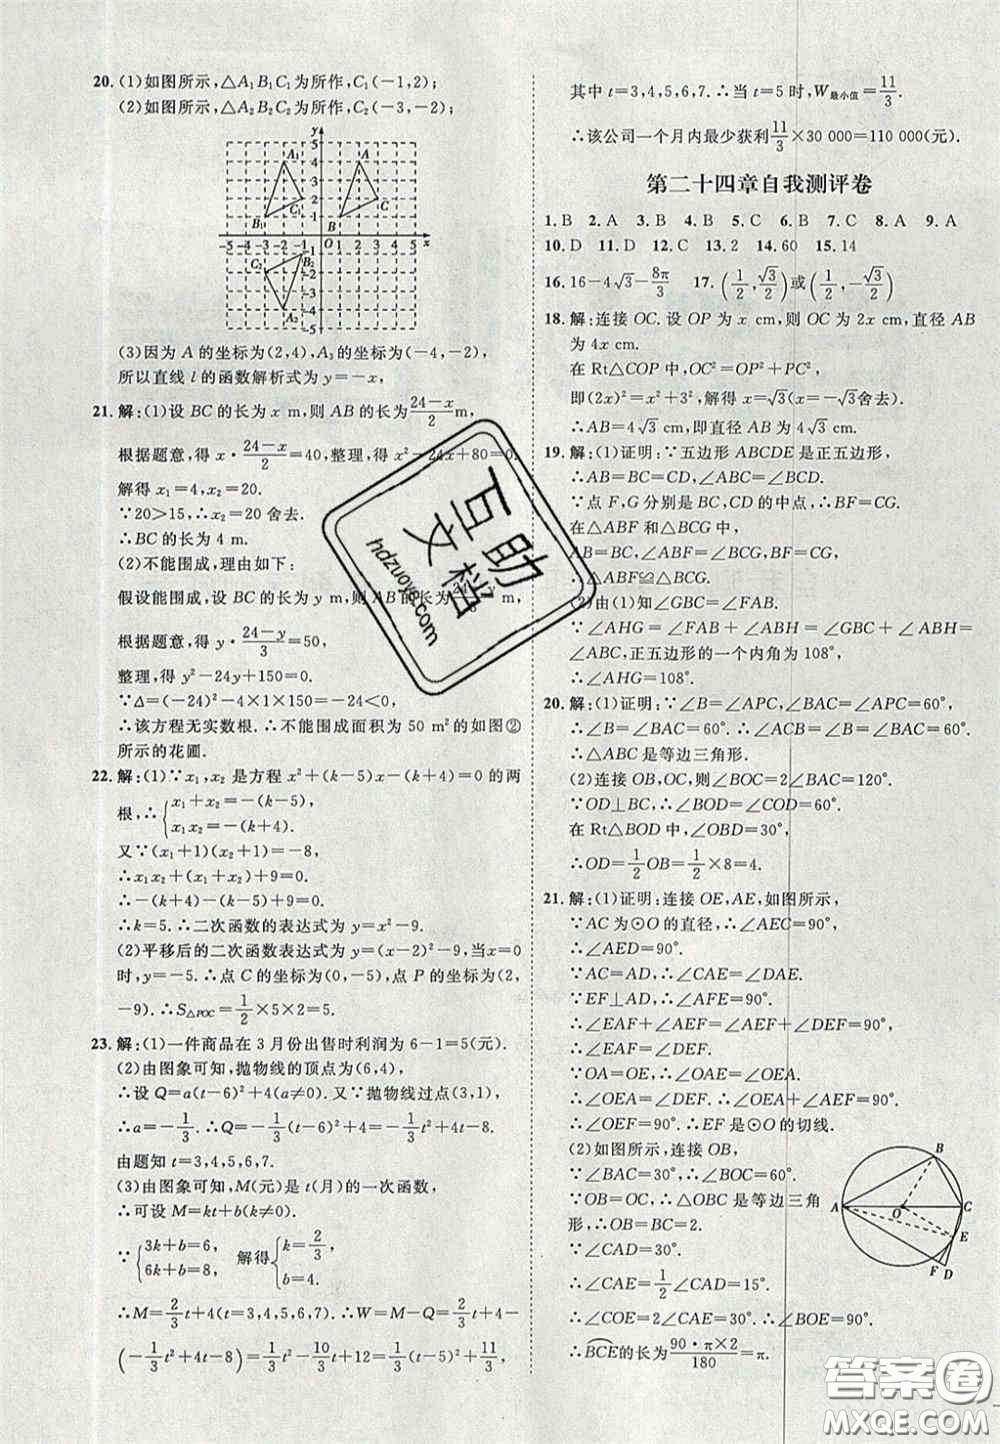 20. (1)如图所示,△A₁B₁C₁为所作,C₁(-1,2);
(2)如图所示,△A₂B₂C₂为所作,C₂(-3,-2);
y
5
4
3
2
1
A₁
A
C₁
C
B₁
B
-5 -4 -3 -2 -1 O 1 2 3 4 5 x
-1
-2
-3
-4
-5
C₂
B₂
A₂
(3)因为 A 的坐标为(2,4),A₃的坐标为(-4,-2),
所以直线 l 的函数解析式为 y=-x,
21. 解:(1)设 BC 的长为 x m,则 AB 的长为(24-x)/2 m,
根据题意,得 x·(24-x)/2=40,整理,得 x²-24x+80=0.
解得 x₁=4,x₂=20.
∵20>15,∴x₂=20 舍去.
∴BC 的长为 4 m.
(2)不能围成,理由如下:
假设能围成,设 BC 的长为 y m,则 AB 的长为 m,
根据题意,得 y·(24-y)/3=50,
整理,得 y²-24y+150=0.
∵Δ=(-24)²-4×1×150=-24<0,
∴该方程无实数根. ∴不能围成面积为 50 m²的如图②
所示的花圃.
22. 解:(1)∵x₁,x₂ 是方程 x²+(k-5)x-(k+4)=0 的两
根,∴{x₁+x₂=-(k-5),
x₁x₂=-(k+4).
又∵(x₁+1)(x₂+1)=-8,
∴x₁x₂+(x₁+x₂)+9=0.
∴-(k+4)-(k-5)+9=0.
∴k=5. ∴二次函数的表达式为 y=x²-9.
(2)平移后的二次函数表达式为 y=(x-2)²-9,当 x=0
时,y=-5. ∴点 C 的坐标为(0,-5),点 P 的坐标为(2,
-9). ∴S△POC=1/2×5×2=5.
23. 解:(1)一件商品在 3 月份出售时利润为 6-1=5(元).
(2)由图象可知,抛物线的顶点为(6,4),
∴设 Q=a(t-6)²+4(a≠0). 又∵抛物线过点(3,1),
∴a=-1/3. ∴Q=-1/3(t-6)²+4=-1/3t²+4t-8.
由题知 t=3,4,5,6,7.
(3)由图象可知,M(元)是 t(月)的一次函数,
∴可设 M=kt+b(k≠0).
∵{3k+b=6,
6k+b=8. 解得{k=2/3,
b=4.
∴M=2/3t+4(t=3,4,5,6,7). ∴W=M-Q=2/3t+4-
(-1/3t²+4t-8)=1/3t²-10/3t+12=1/3(t-5)²+11/3,
其中 t=3,4,5,6,7. ∴当 t=5 时,W最小值=11/3.
∴该公司一个月内最少获利11/3×30 000=110 000(元).
第二十四章自我测评卷
1. B 2. A 3. B 4. B 5. C 6. B 7. C 8. A 9. A
10. D 11. D 12. C 13. 2 14. 60 15. 14
16. 16-4√3-8π/3 17. (1/2,√3/2)或(1/2,-√3/2)
18. 解:连接 OC. 设 OP 为 x cm,则 OC 为 2x cm,直径 AB
为 4x cm.
在 Rt△COP 中,OC²=OP²+PC²
即(2x)²=x²+3²,解得 x=√3(x=-√3舍去).
∴AB=4√3 cm,即直径 AB 为 4√3 cm.
19. 解:(1)证明:∵五边形 ABCDE 是正五边形,
∴AB=BC=CD,∠ABC=∠BCD.
∵点 F,G 分别是 BC,CD 的中点,∴BF=CG.
在△ABF 和△BCG 中,
AB=BC,∠ABC=∠BCD,BF=CG,
∴△ABF≌△BCG.
(2)由(1)知∠GBC=∠FAB.
∵∠AHG=∠FAB+∠ABH=∠ABH+∠GBC=
∠ABC,正五边形的一个内角为 108°,
∴∠AHG=108°.
20. 解:(1)证明:∵∠B=∠APC,∠BAC=∠APC=60°,
∴∠B=∠BAC=60°. ∴∠B=∠BAC=∠ACB=60°.
∴△ABC 是等边三角形.
(2)连接 OB,OC,则∠BOC=2∠BAC=120°.
∵OD⊥BC,∴∠BOD=∠COD=60°.
在 Rt△BOD 中,∠OBD=30°,
∴OD=1/2OB=1/2×8=4.
21. 解:(1)证明:连接 OE,AE,如图所示,
∵AC 为⊙O 的直径,∴∠AEC=90°.
∴∠AED=90°.
∵AC=AD,∴∠CAE=∠DAE.
∵EF⊥AD,∴∠AFE=90°.
∴∠EAF+∠AEF=∠AEF+∠DEF=90°,
∴∠EAF=∠DEF. ∴∠CAE=∠DEF.
∵OA=OE,∴∠OEA=∠OAE.
∴∠OEA=∠DEF. ∴∠OEA+∠AEF=90°.
∴∠OEF=90°. ∴OE⊥EF. ∴EF 是⊙O 的切线.
(2)如图所示,连接 OB,
∵∠BAC=30°,∴∠BOC=60°.
∵OB=OC,∴△OBC 是等边三角
形,∴OB=BC=2.
∵∠CAD=30°,
∴∠CAE=1/2∠CAD=15°.
∴∠COE=2∠CAE=30°. ∴∠BOE=90°.
∴BCE的长为(90·π×2)/180=π.
A
B
O
C
E
F
D
互助
文档
hdzuoye.com
答案圈
MXQE.COM